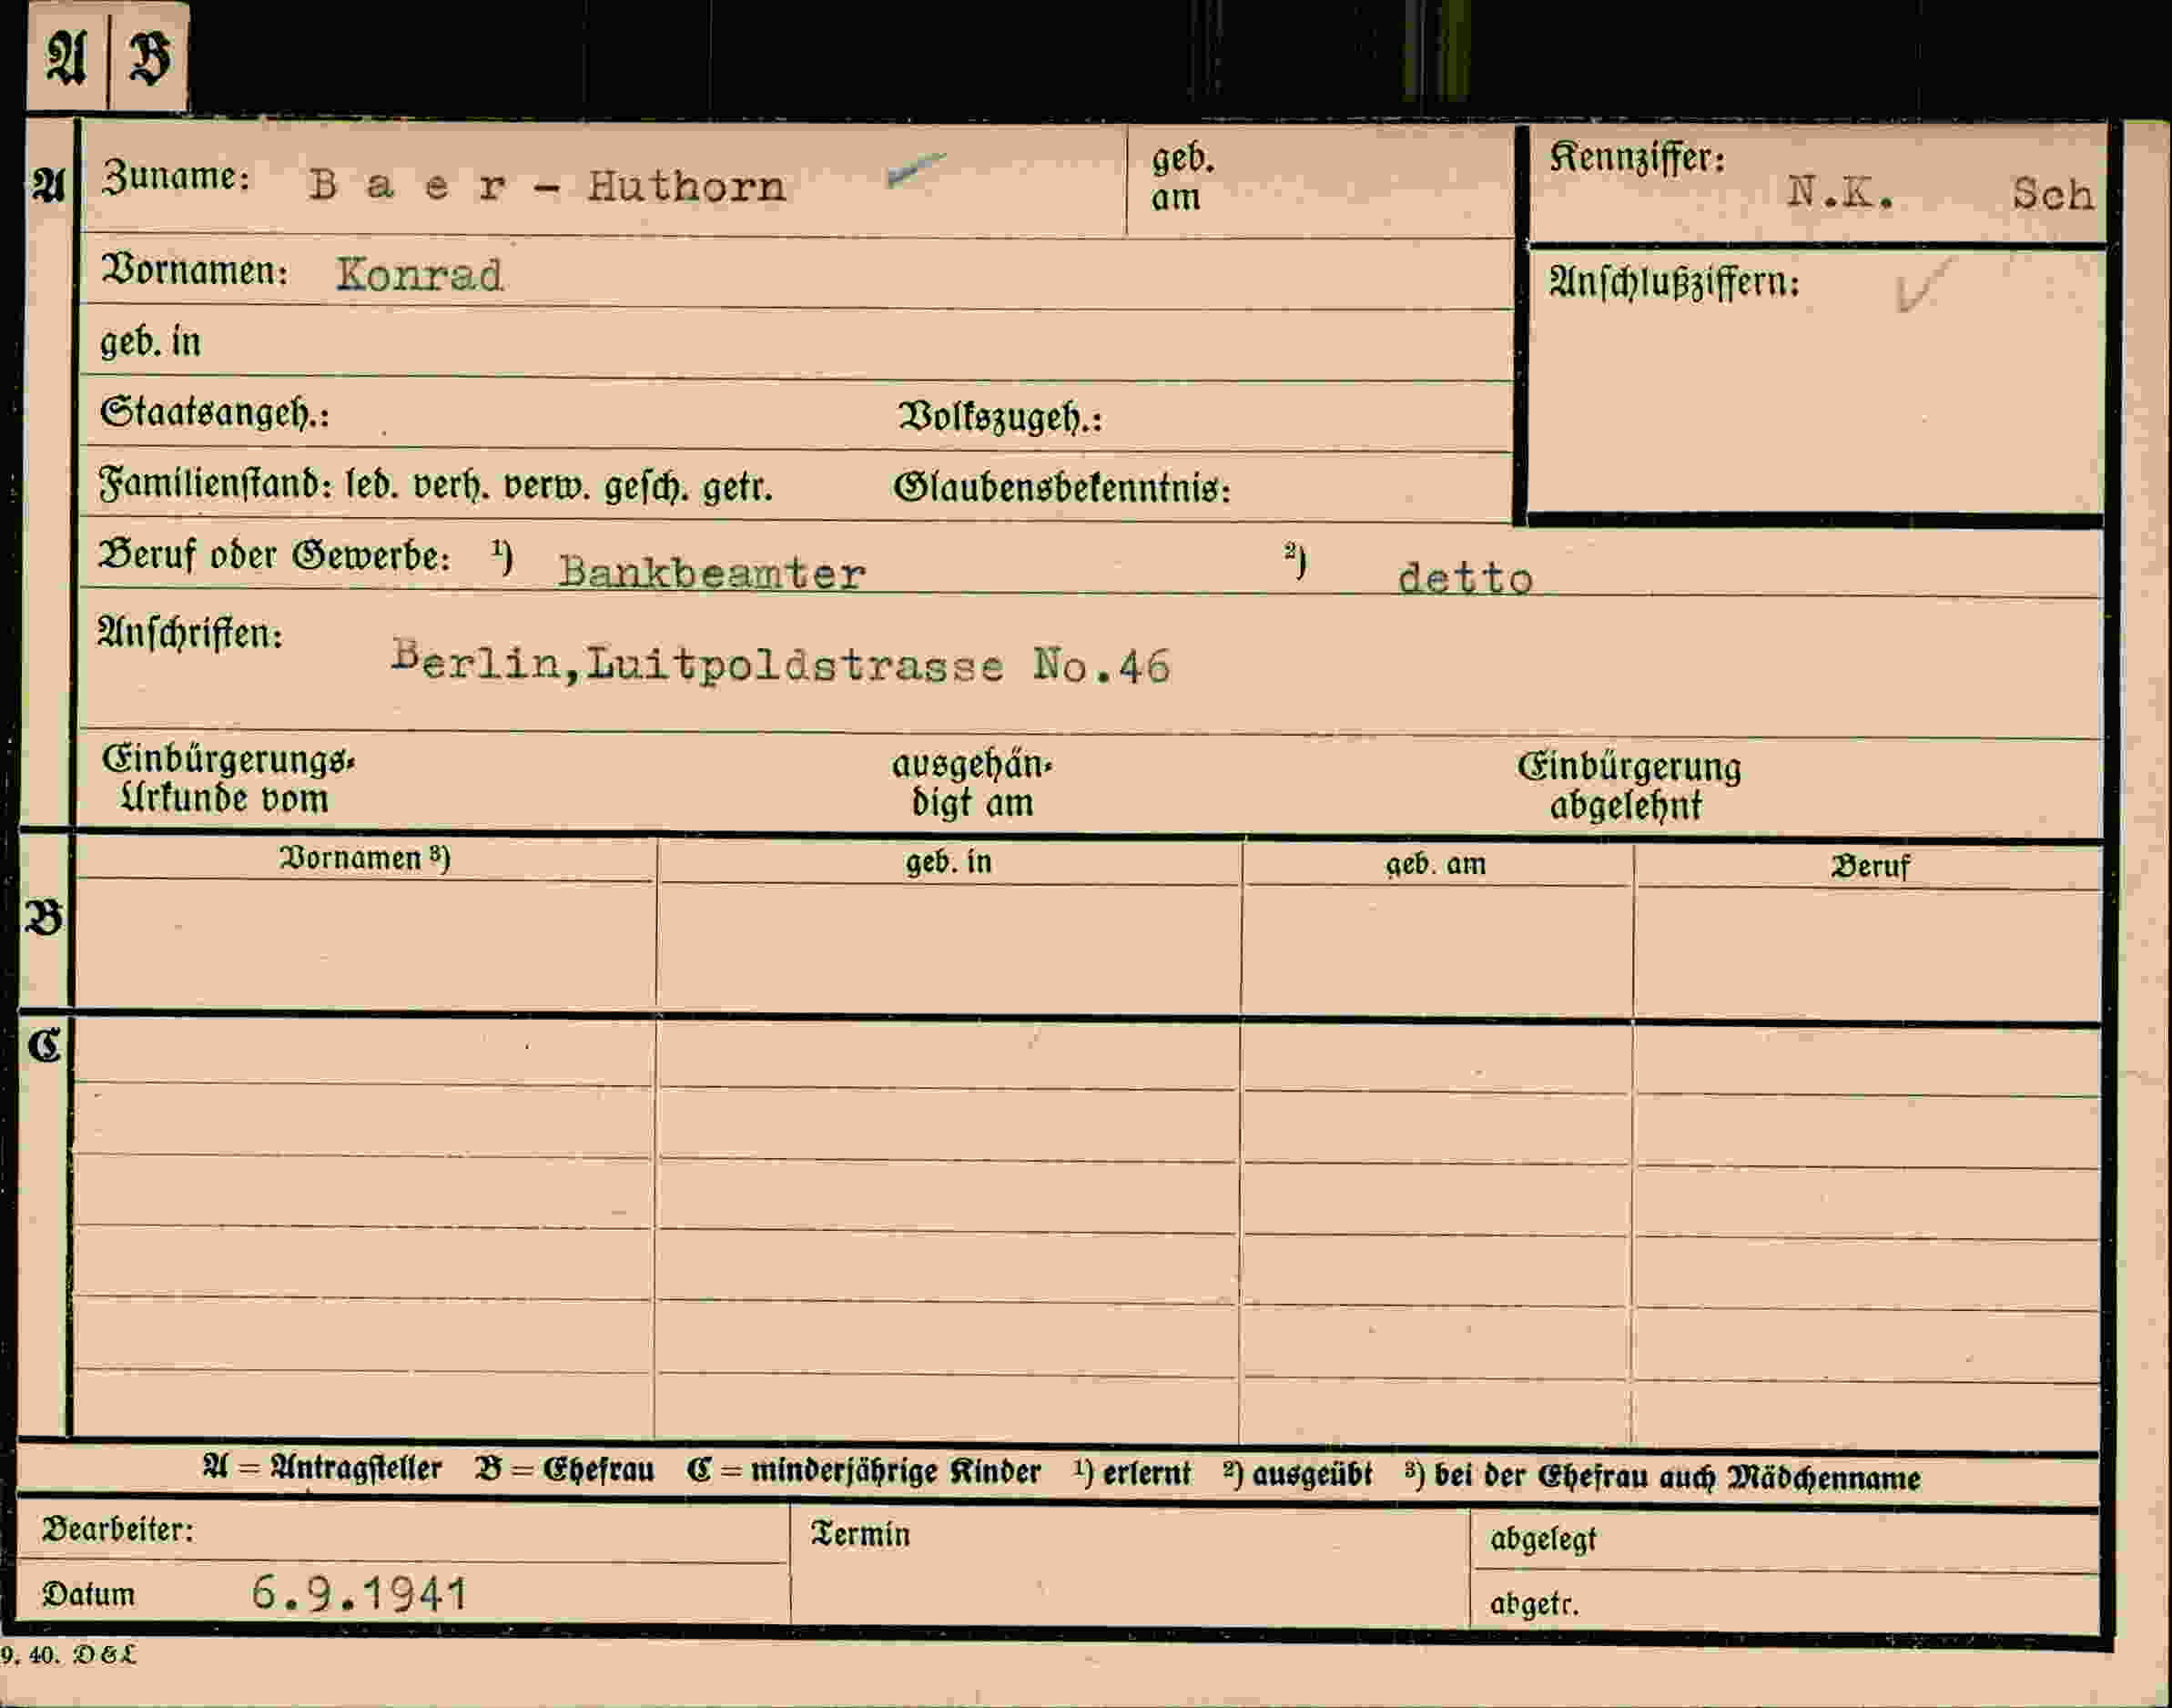 A B
A Zuname: B a e r - Huthorn geb. am Kennziffer: N.K. Sch
Vornamen: Konrad Anschlußziffern:
geb. in
Staatsangeh.: Volkszugeh.:
Familienstand: led. verh. verw. gesch. getr. Glaubensbekenntnis:
Beruf oder Gewerbe: ¹) Bankbeamter ²) detto
Anschriften: Berlin,Luitpoldstrasse No.46
Einbürgerungs- ausgehän- Einbürgerung
Urkunde vom digt am abgelehnt
Vornamen ³) geb. in geb. am Beruf
B
C
A = Antragsteller B = Ehefrau C = minderjährige Kinder ¹) erlernt ²) ausgeübt ³) bei der Ehefrau auch Mädchenname
Bearbeiter: Termin abgelegt
Datum 6.9.1941 abgetr.
9. 40. D & L